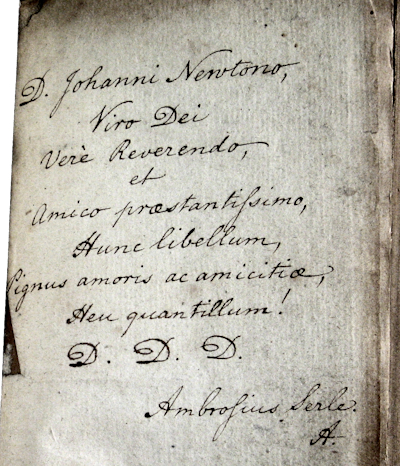 D. Johanni Newtono,
Viro Dei
Verè Reverendo,
et
Amico præstantiſsimo,
Hunc libellum,
Pignus amoris ac amicitiæ,
Heu quantillum!
D. D. D.
Ambroſius Serle.
A.